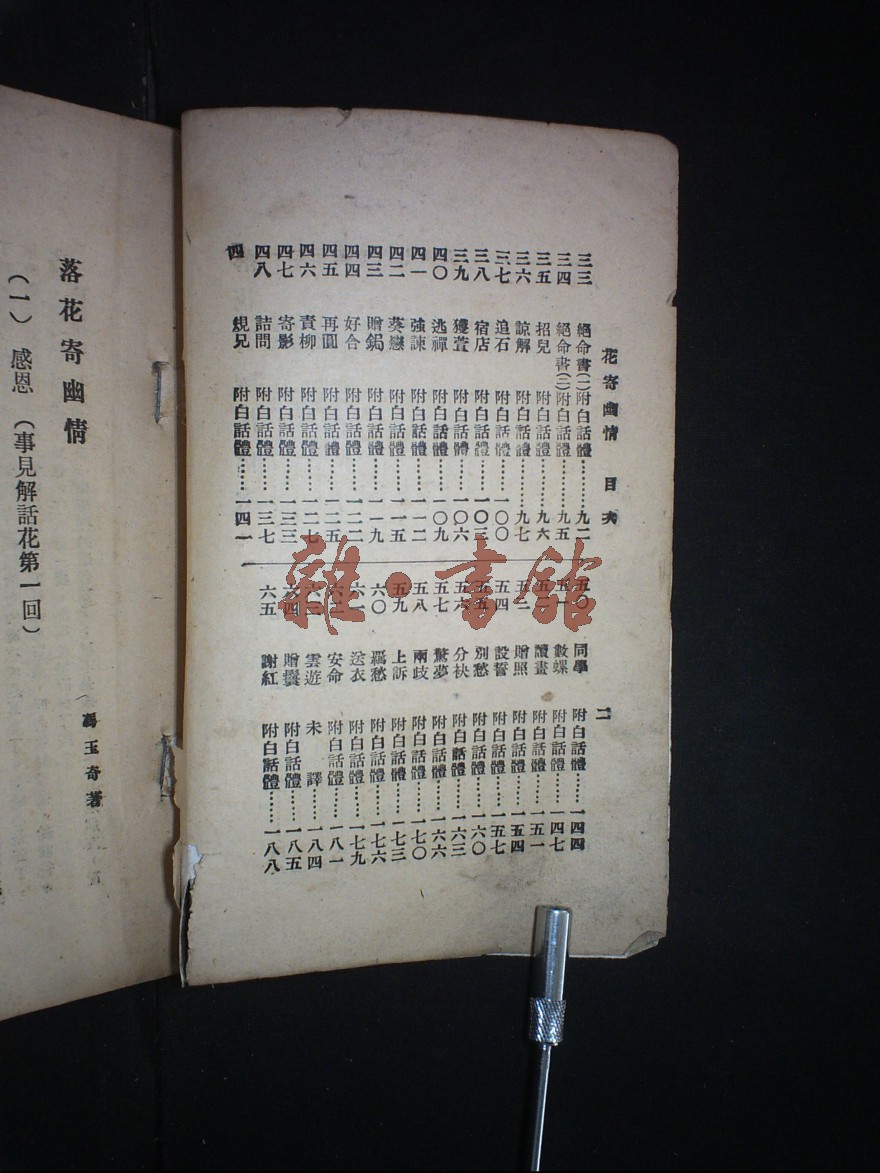 花寄幽情 目次 二
三三 絕命書(二)附白話體………九二
三四 絕命書(三)附白話體………九五
三五 招兒 附白話體………九六
三六 諒解 附白話體………九七
三七 追石 附白話體……一〇〇
三八 宿店 附白話體……一〇三
三九 獲萱 附白話體……一〇六
四〇 逃禪 附白話體……一〇九
四一 強諫 附白話體……一一二
四二 葵戀 附白話體……一一五
四三 贈鍋 附白話體……一一九
四四 好合 附白話體……一二二
四五 再圓 附白話體……一二五
四六 責柳 附白話體……一二七
四七 寄影 附白話體……一三三
四八 詰問 附白話體……一三七
四 規兄 附白話體……一四一
五〇 同學 附白話體……一四四
五一 數蝶 附白話體……一四七
五二 讀畫 附白話體……一五一
五三 贈照 附白話體……一五四
五四 設誓 附白話體……一五七
五五 別愁 附白話體……一六〇
五六 分袂 附白話體……一六三
五七 驚夢 附白話體……一六六
五八 兩歧 附白話體……一七〇
五九 上訴 附白話體……一七三
六〇 羈愁 附白話體……一七六
六一 送衣 附白話體……一七九
六二 安命 附白話體……一八一
六三 雲遊 未譯……一八四
六四 贈鬟 附白話體……一八五
六五 謝紅 附白話體……一八八
落花寄幽情
馮玉奇著
(一)感恩(事見解話花第一回)
雜·書館